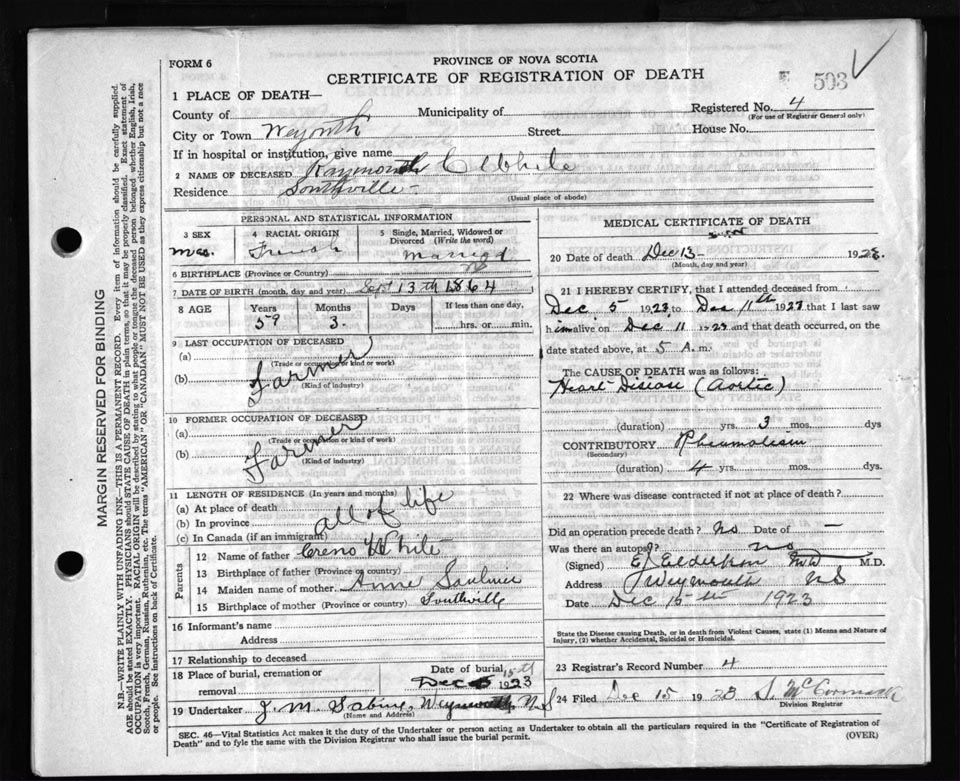 FORM 6
PROVINCE OF NOVA SCOTIA
CERTIFICATE OF REGISTRATION OF DEATH
503
1 PLACE OF DEATH—
County of
Municipality of
Registered No. 4
(For use of Registrar General only)
City or Town Weymouth
Street
House No.
If in hospital or institution, give name
2 NAME OF DECEASED Raymond C White
Residence Southville
(Usual place of abode)
PERSONAL AND STATISTICAL INFORMATION
3 SEX
4 RACIAL ORIGIN French
5 Single, Married, Widowed or Divorced (Write the word)
Married
6 BIRTHPLACE (Province or Country) NS
7 DATE OF BIRTH (month, day and year) Sept 13th 1864
8 AGE
Years 59
Months 3
Days
If less than one day,
hrs. or min.
9 LAST OCCUPATION OF DECEASED
(a)
(Trade or occupation or kind of work)
(b) Farmer
(Kind of industry)
10 FORMER OCCUPATION OF DECEASED
(a)
(Trade or occupation or kind of work)
(b) Farmer
(Kind of industry)
11 LENGTH OF RESIDENCE (In years and months)
(a) At place of death
(b) In province all of life
(c) In Canada (if an immigrant)
Parents
12 Name of father White
13 Birthplace of father (Province or country)
14 Maiden name of mother Anne Saulnier
15 Birthplace of mother (Province or country) Southville
16 Informant's name
Address
17 Relationship to deceased
18 Place of burial, cremation or removal
Date of burial
Dec 15th 1923
19 Undertaker J. M. Sabine, Weymouth, N.S
(Name and Address)
MEDICAL CERTIFICATE OF DEATH
20 Date of death Dec 13 1923
(Month, day and year)
21 I HEREBY CERTIFY, that I attended deceased from
Dec. 5 1923 to Dec 11th 1923 that I last saw
him alive on Dec 11 1923 and that death occurred, on
date stated above, at 5 A. m.
The CAUSE OF DEATH was as follows:
Heart Disease (Aortic)
(duration) yrs. 3 mos. dys
CONTRIBUTORY Rheumatism
(Secondary)
(duration) 4 yrs. mos. dys.
22 Where was disease contracted if not at place of death?
Did an operation precede death? No Date of —
Was there an autopsy? no
(Signed) Elderkin MD M.D.
Address Weymouth NS
Date Dec 15th 1923
State the Disease causing Death, or in death from Violent Causes, state (1) Means and Nature of
Injury, (2) whether Accidental, Suicidal or Homicidal.
23 Registrar's Record Number 4
24 Filed Dec 15 1923 S. McCormack
Division Registrar
SEC. 46—Vital Statistics Act makes it the duty of the Undertaker or person acting as Undertaker to obtain all the particulars required in the "Certificate of Registration of
Death" and to fyle the same with the Division Registrar who shall issue the burial permit.
(OVER)
MARGIN RESERVED FOR BINDING
N.B.—WRITE PLAINLY WITH UNFADING INK—THIS IS A PERMANENT RECORD. Every item of information should be carefully supplied.
AGE should be stated EXACTLY. PHYSICIANS should STATE CAUSE OF DEATH in plain terms, so that it may be properly classified. Exact statement of
OCCUPATION is very important. RACIAL ORIGIN will be described by stating to what people or tongue the deceased person belonged, whether English, Irish,
Scotch, French, German, Russian, Ruthenian, etc. The terms "AMERICAN" OR "CANADIAN" MUST NOT BE USED as they express citizenship but not a race
or people. See instructions on back of Certificate.